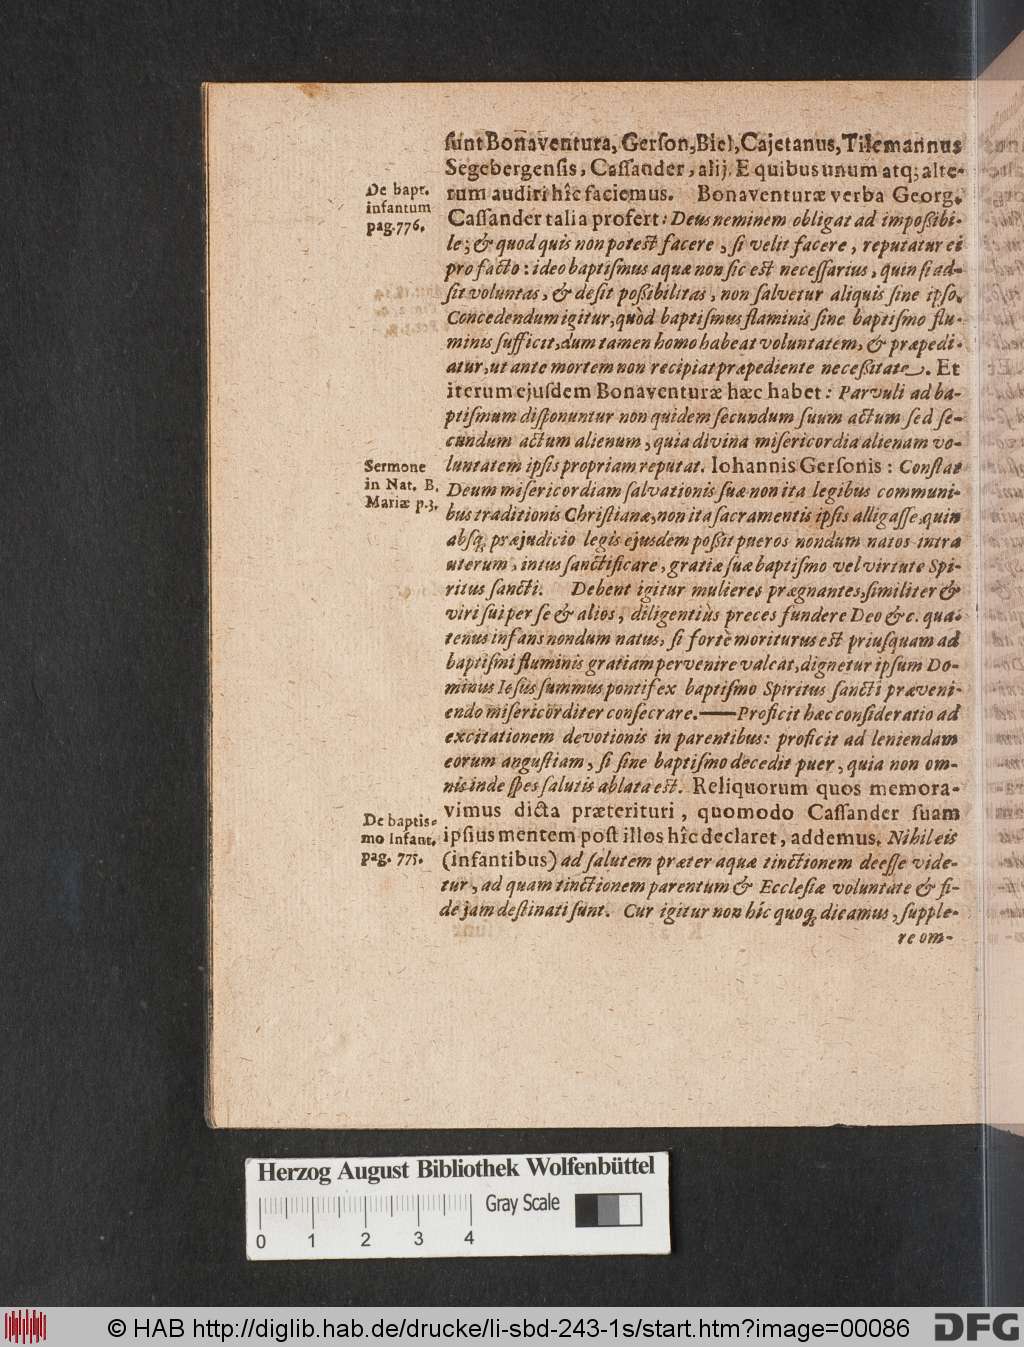 ſunt Bonaventura, Gerſon, Biel, Cajetanus, Tilemannus
Segebergenſis, Caſſander, alij. E quibus unum atq; alte-
rum audiri hîc faciemus. Bonaventuræ verba Georg.
Caſſander talia profert: Deus neminem obligat ad impoßibi-
le; & quod quis non poteſt facere, ſi velit facere, reputatur ei
pro facto: ideo baptiſmus aquæ non ſic eſt neceſſarius, quin ſi ad-
ſit voluntas, & deſit poßibilitas, non ſalvetur aliquis ſine ipſo.
Concedendum igitur, quòd baptiſmus flaminis ſine baptiſmo flu-
minis ſufficit, dum tamen homo habeat voluntatem, & præpedi-
atur, ut ante mortem non recipiat præpediente neceßitate. Et
iterum ejuſdem Bonaventuræ hæc habet: Parvuli ad ba-
ptiſmum diſponuntur non quidem ſecundum ſuum actum ſed ſe-
cundum actum alienum, quia divina miſericordia alienam vo-
luntatem ipſis propriam reputat. Iohannis Gerſonis: Conſtat
Deum miſericordiam ſalvationis ſuæ non ita legibus communi-
bus traditionis Chriſtianæ, non ita ſacramentis ipſis alligaſſe, quin
abſq; præjudicio legis ejusdem poßit pueros nondum natos intra
uterum, intus ſanctificare, gratiæ ſuæ baptiſmo vel virtute Spi-
ritus ſancti. Debent igitur mulieres prægnantes, ſimiliter &
viri ſui per ſe & alios, diligentiùs preces fundere Deo &c. qua-
tenus infans nondum natus, ſi fortè moriturus eſt priuſquam ad
baptiſmi fluminis gratiam pervenire valeat, dignetur ipſum Do-
minus Ieſus ſummus pontifex baptiſmo Spiritus ſancti præveni-
endo miſericorditer conſecrare.—Proficit hæc conſideratio ad
excitationem devotionis in parentibus: proficit ad leniendam
eorum anguſtiam, ſi ſine baptiſmo decedit puer, quia non om-
nis inde ſpes ſalutis ablata eſt. Reliquorum quos memora-
vimus dicta præterituri, quomodo Caſſander ſuam
ipſius mentem poſt illos hîc declaret, addemus. Nihil eis
(infantibus) ad ſalutem præter aquæ tinctionem deeſſe vide-
tur, ad quam tinctionem parentum & Eccleſiæ voluntate & fi-
de jam deſtinati ſunt. Cur igitur non hîc quoq; dicamus, ſupple-
re om-
De bapt.
infantum
pag. 776.
Sermone
in Nat. B.
Mariæ p.3.
De baptis-
mo Infant.
pag. 775.
Herzog August Bibliothek Wolfenbüttel
Gray Scale
0 1 2 3 4
© HAB http://diglib.hab.de/drucke/li-sbd-243-1s/start.htm?image=00086
DFG